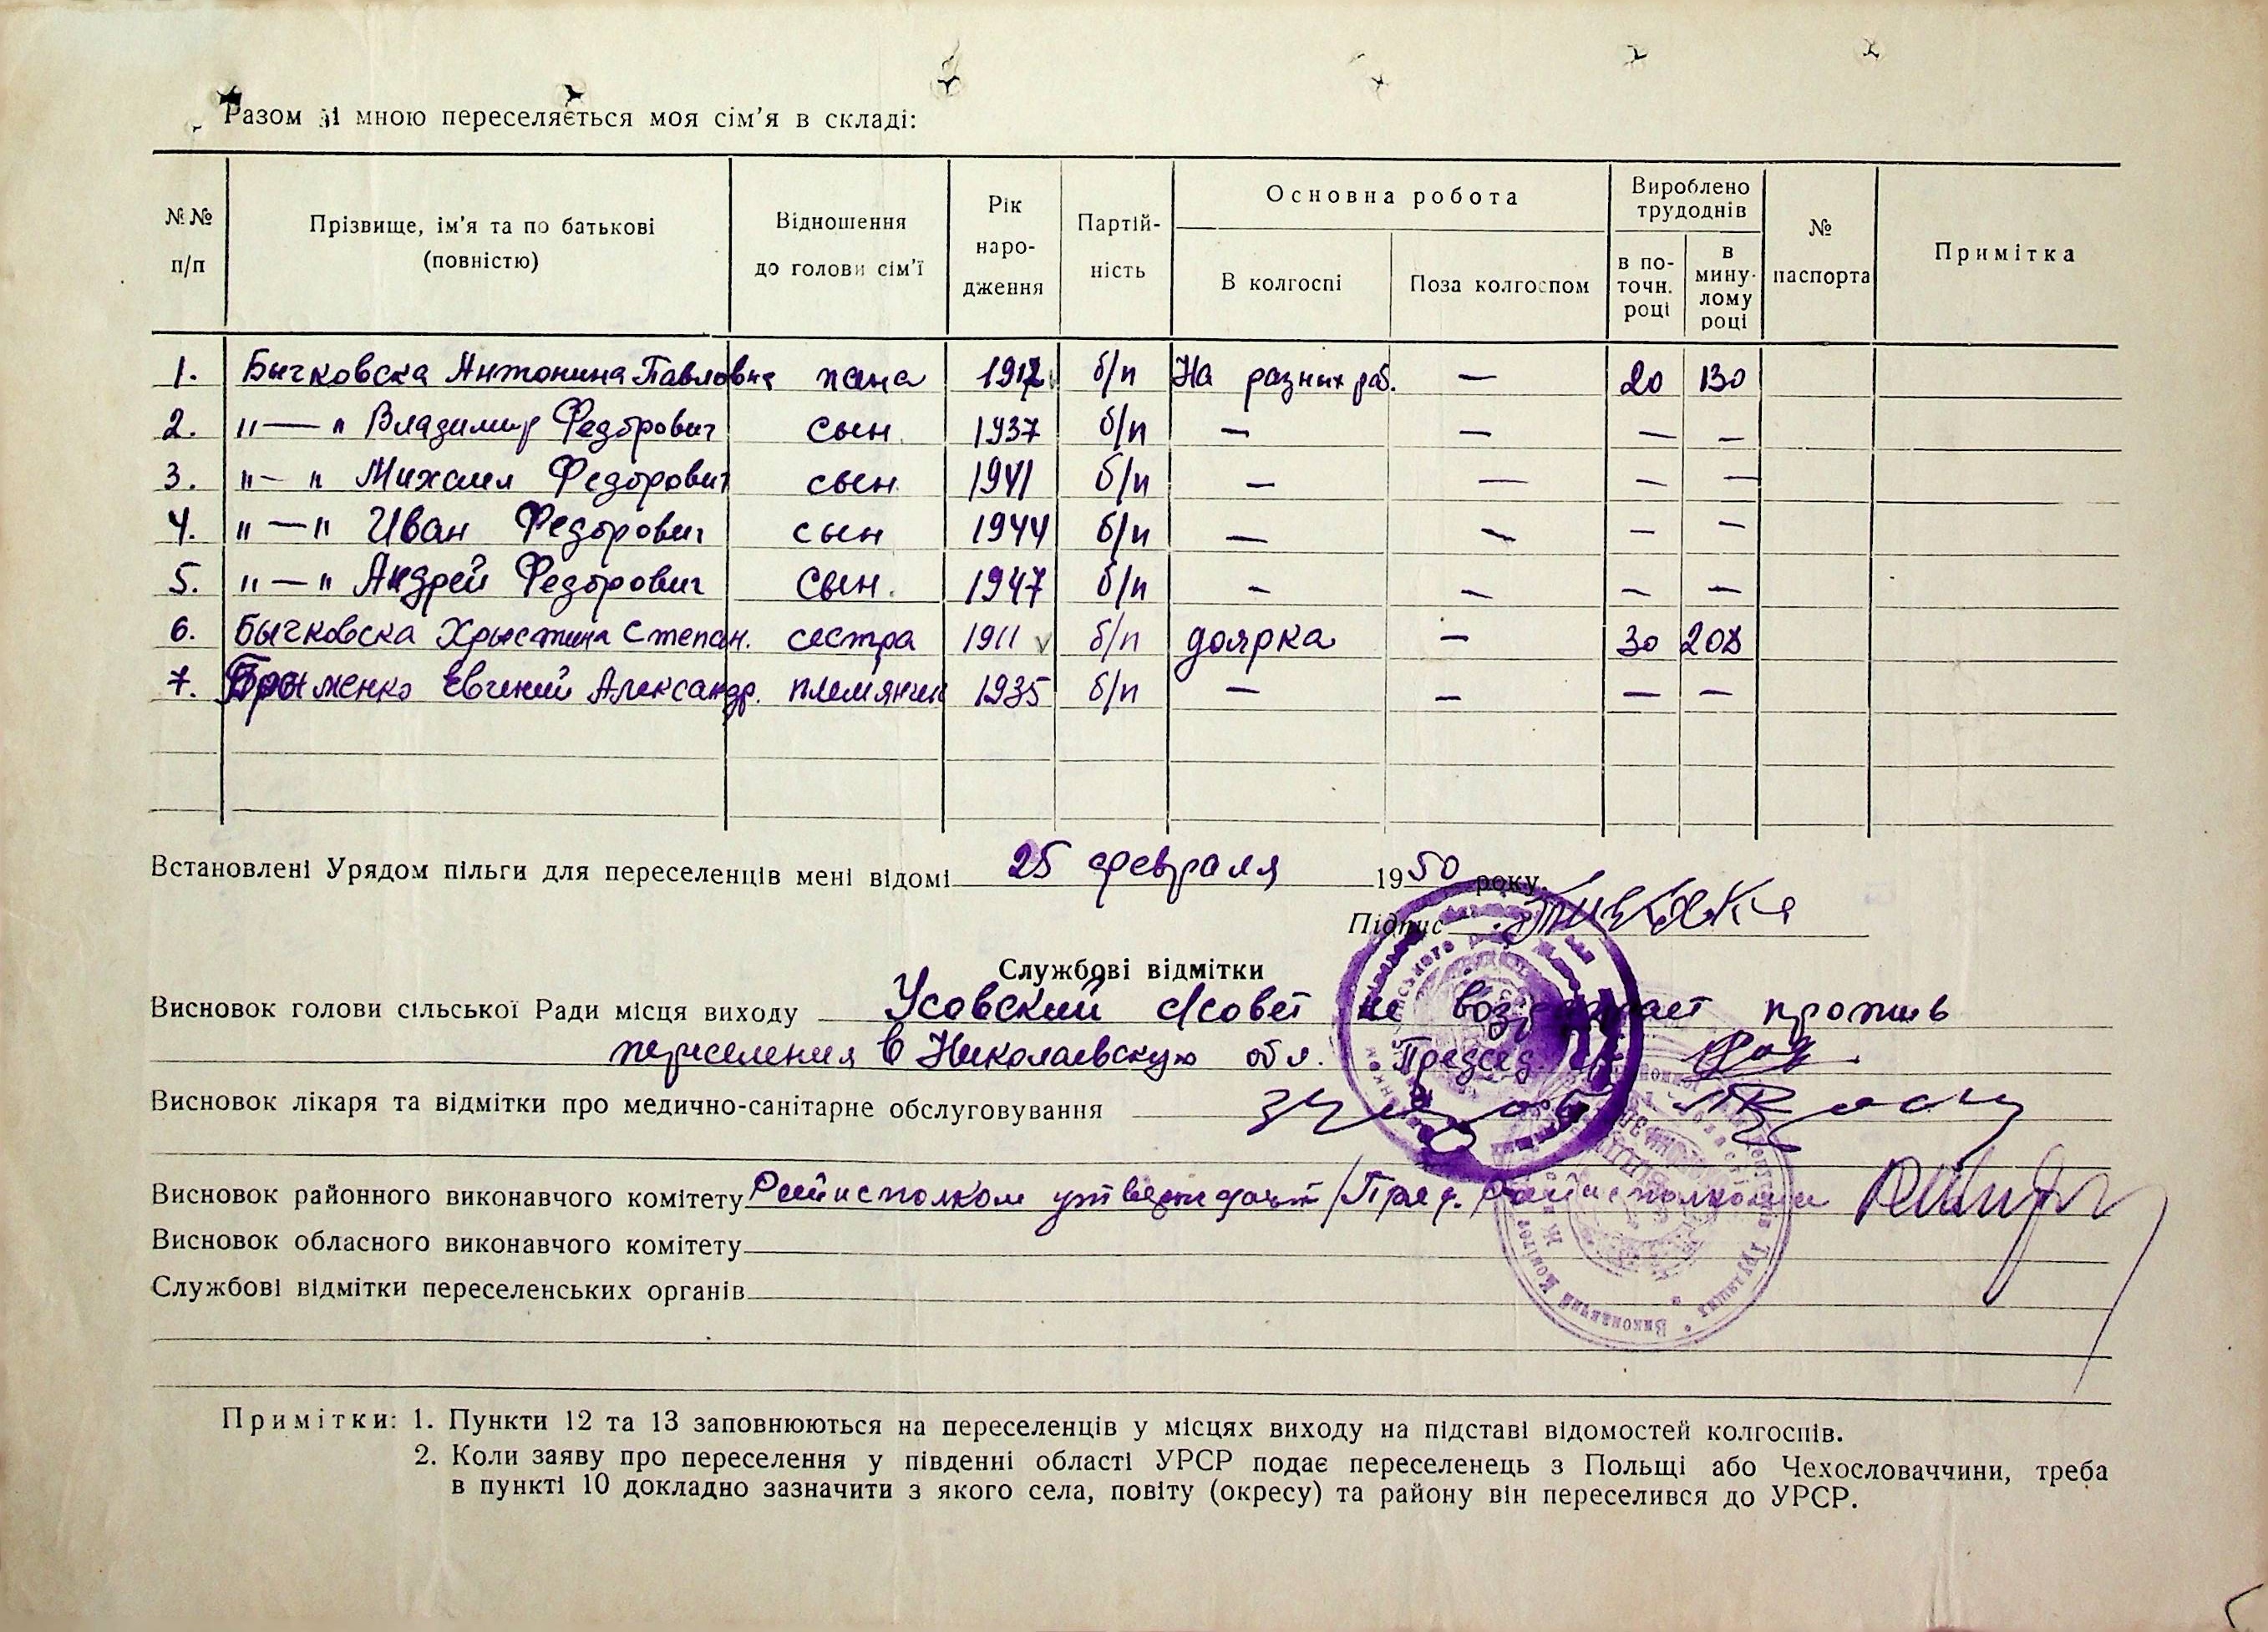 Разом зі мною переселяється моя сім'я в складі:
№№ п/п
Прізвище, ім'я та по батькові (повністю)
Відношення до голови сім'ї
Рік народження
Партійність
Основна робота
В колгоспі
Поза колгоспом
Вироблено трудоднів
в поточн. році
в минулому році
№ паспорта
Примітка
1. Бычковска Антонина Павловна жена 1912 б/п На разных раб. — 20 130
2. "—" Владимир Федорович сын 1937 б/п — — — —
3. "—" Михаил Федорович сын 1941 б/п — — — —
4. "—" Иван Федорович сын 1944 б/п — — — —
5. "—" Андрей Федорович сын. 1947 б/п — — — —
6. Бычковска Хрыстина Степан. сестра 1911 б/п доярка — 30 208
7. Евгений Александр. племянник 1935 б/п — — — —
Встановлені Урядом пільги для переселенців мені відомі 25 февраля 1950 року.
Підпис
Службові відмітки
Висновок голови сільської Ради місця виходу Усовский с/совет не возражает против
переселения в Николаевскую обл. Председ.
Висновок лікаря та відмітки про медично-санітарне обслуговування
Висновок районного виконавчого комітету Райисполком утверждает /Пред. райисполкома
Висновок обласного виконавчого комітету
Службові відмітки переселенських органів
Примітки: 1. Пункти 12 та 13 заповнюються на переселенців у місцях виходу на підставі відомостей колгоспів.
2. Коли заяву про переселення у південні області УРСР подає переселенець з Польщі або Чехословаччини, треба
в пункті 10 докладно зазначити з якого села, повіту (окресу) та району він переселився до УРСР.